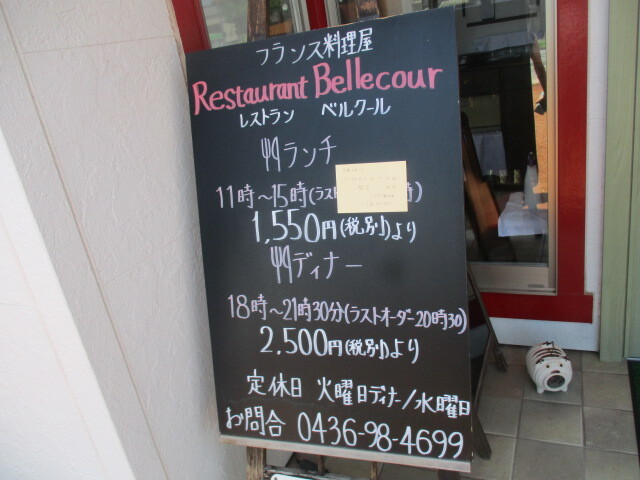 フランス料理屋
Restaurant Bellecour
レストラン ベルクール
ランチ
11時～15時(ラスト 時)
1,550円(税別)より
ディナー
18時～21時30分(ラストオーダー20時30)
2,500円(税別)より
定休日 火曜日ディナー/水曜日
お問合 0436-98-4699